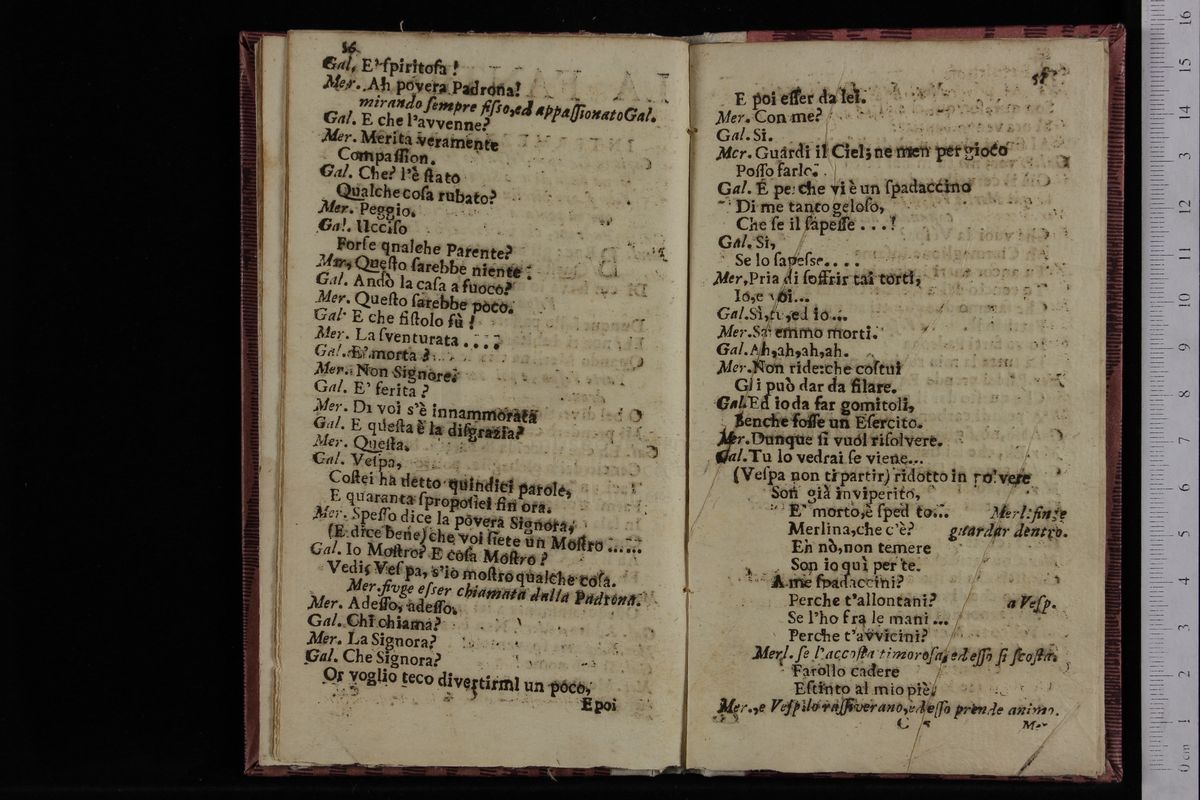 56
Gal. E' ſpiritoſa !
Mer. Ah povera Padrona!
mirando ſempre fiſſo,ed appaſſionato Gal.
Gal. E che l'avvenne?
Mer. Merita veramente
Compaſſion.
Gal. Che? l'è ſtato
Qualche coſa rubato?
Mer. Peggio.
Gal. Ucciſo
Forſe qnalehe Parente?
Mer. Queſto ſarebbe niente :
Gal. Andò la caſa a fuoco?
Mer. Queſto ſarebbe poco.
Gal. E che fiſtolo fù !
Mer. La ſventurata . . . .
Gal. E' morta ?
Mer. Non Signore.
Gal. E' ferita ?
Mer. Di voi s'è innammorata
Gal. E queſta è la diſgrazia?
Mer. Queſta.
Gal. Veſpa,
Coſtei ha detto quindici parole,
E quaranta ſpropoſiei fin ora.
Mer. Speſſo dice la povera Signora,
(E dice bene) che voi ſiete un Moſtro ......
Gal. Io Moſtro? E coſa Moſtro ?
Vedi, Veſpa, s'io moſtro qualche coſa.
Mer. fivge eſſer chiamata dalla Padrona.
Mer. Adeſſo, adeſſo.
Gal. Chi chiama?
Mer. La Signora?
Gal. Che Signora?
Or voglio teco divertirmI un poco,
E poi
E poi eſſer da lei.
Mer. Con me?
Gal. Si.
Mer. Guardi il Ciel; ne men per gioco
Poſſo farlo.
Gal. E perche vi è un ſpadaccino
Di me tanto geloſo,
Che ſe il ſapeſſe . . . !
Gal. Si,
Se lo ſapeſse. . . .
Mer. Pria di ſoffrir tai torti,
Io,e voi...
Gal. Sì,tu,ed io...
Mer. Saremmo morti.
Gal. Ah,ah,ah,ah.
Mer. Non ride:che coſtui
Gli può dar da filare.
Gal. Ed io da far gomitoli,
Benche foſſe un Eſercito.
Mer. Dunque ſi vuol riſolvere.
Gal. Tu lo vedrai ſe viene...
(Veſpa non ti partir) ridotto in polvere
Son già inviperito,
E' morto,è ſpedito... Merl. finge
Merlina,che c'è? guardar dentro.
Eh nò,non temere
Son io quì per te.
A me ſpadaccini?
Perche t'allontani? a Veſp.
Se l'ho fra le mani ...
Perche t'avvicini?
Merl. ſe l'accoſta timoroſa, ed eſſo ſi ſcoſta.
Farollo cadere
Eſtinto al mio piè.
Mer.,e Veſpi lo raſſiverano,ed eſſo prende animo.
C 5
Mer